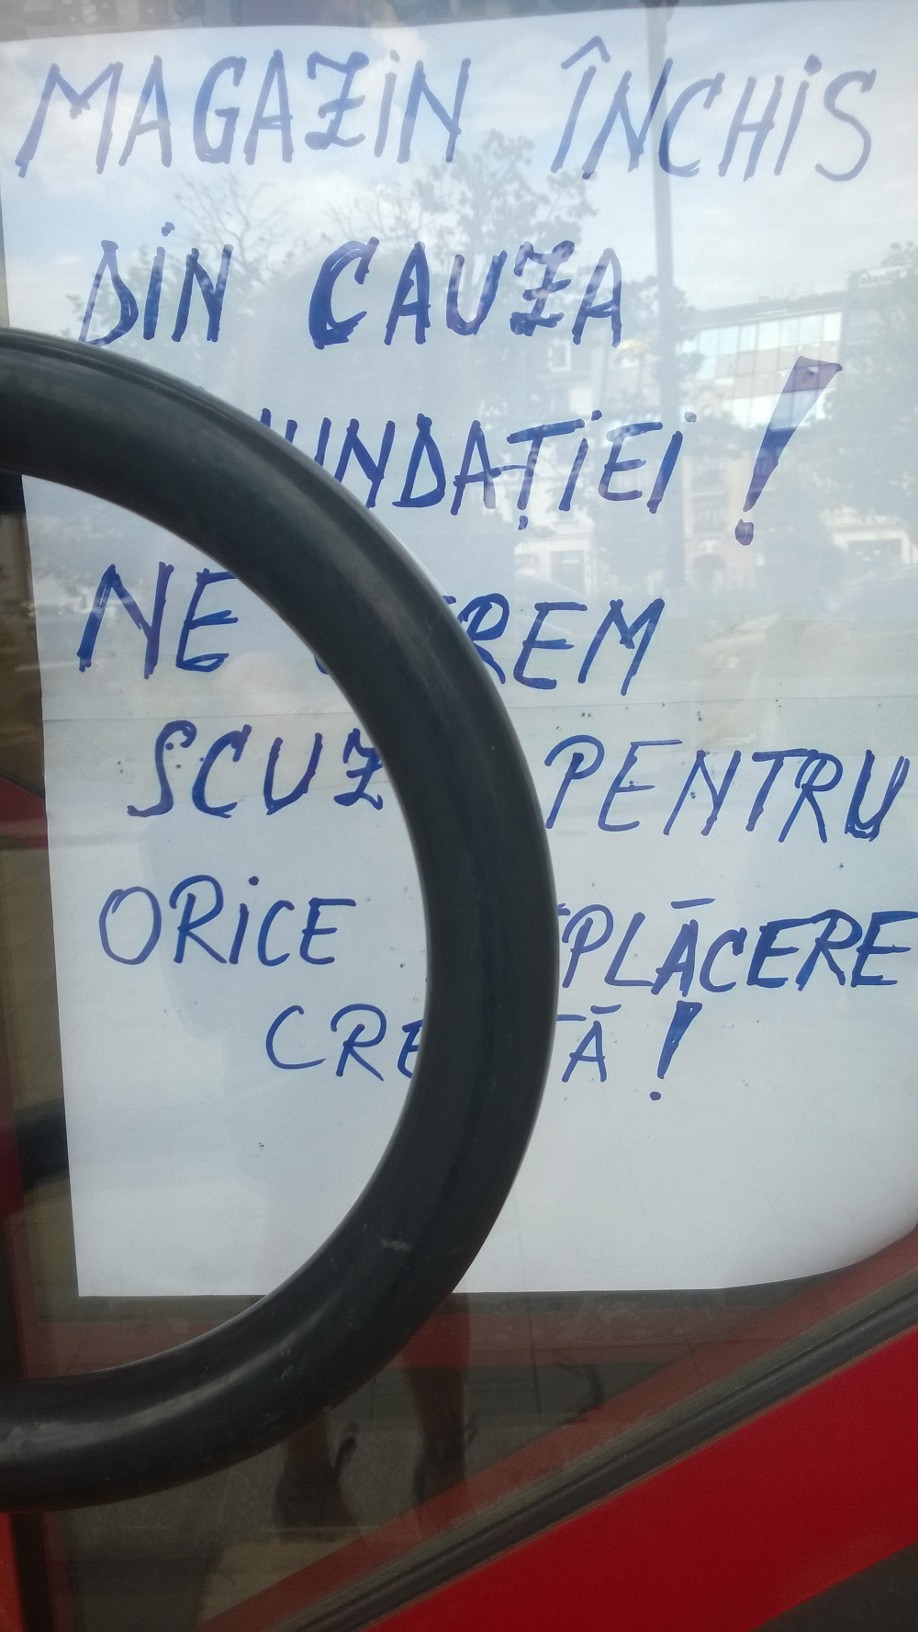 MAGAZIN ÎNCHIS
DIN CAUZA
INUNDAȚIEI !
NE CEREM
SCUZE PENTRU
ORICE NEPLĂCERE
CREATĂ !